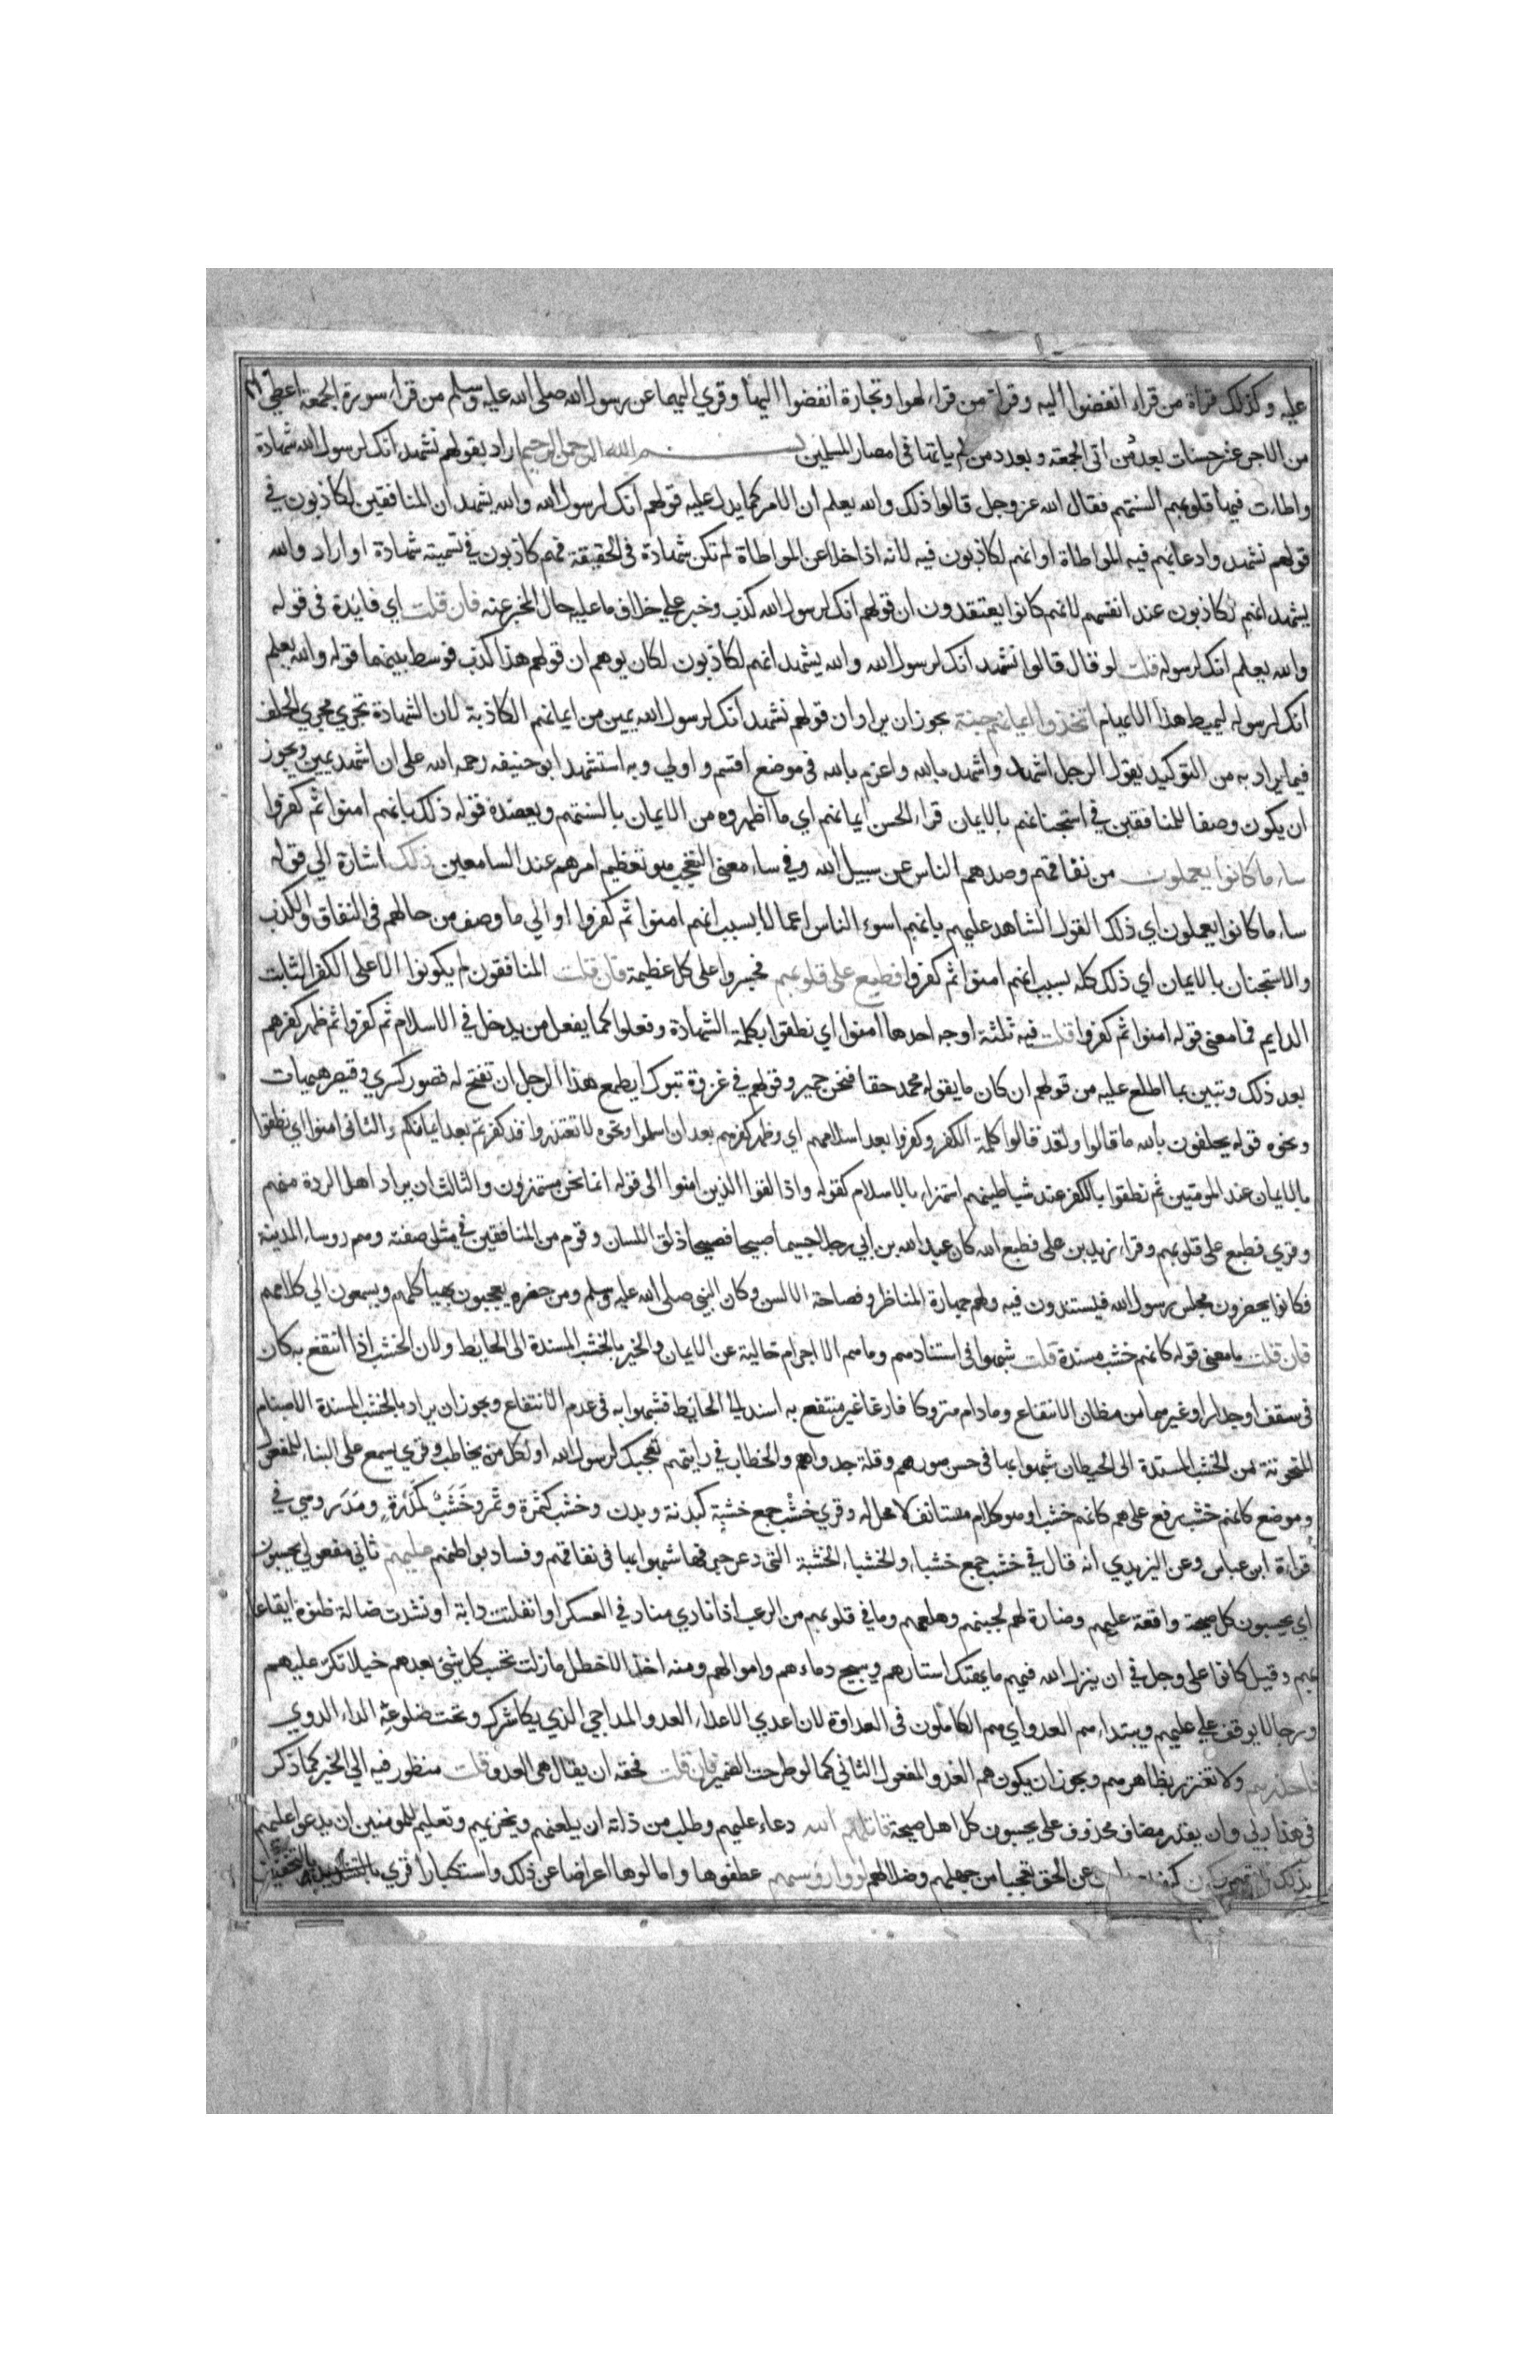 عليه وكذلك قراة من قراء انفضوا اليه وقراة من قراء لهوا وتجارة انفضوا اليها وقري اليهما عن رسول الله صلى الله عليه وسلم من قراء سورة الجمعة اعطي
من الاجر عشر حسنات بعدد من اتى الجمعة وبعدد من لم ياتها في امصار المسلمين بسم الله الرحمن الرحيم اراد بقولهم نشهد انك لرسول الله شهادة
واطات فيها قلوبهم السنتهم فقال الله عز وجل قالوا ذلك والله يعلم ان الامر كما يدل عليه قولهم انك لرسول الله والله يشهد ان المنافقين لكاذبون في
قولهم نشهد وادعايهم فيه المواطاة او انهم لكاذبون فيه لانه اذا خلا عن المواطاة لم تكن شهادة في الحقيقة فهم كاذبون في تسميته شهادة او اراد والله
يشهد انهم لكاذبون عند انفسهم لانهم كانوا يعتقدون ان قولهم انك لرسول الله كذب وخبر على خلاف ما عليه حال المخبر عنه فان قلت اي فايدة في قوله
والله يعلم انك لرسوله قلت لو قال قالوا نشهد انك لرسول الله والله يشهد انهم لكاذبون لكان يوهم ان قولهم هذا كذب فوسط بينهما قوله والله يعلم
انك لرسوله ليميط هذا الايهام اتخذوا ايمانهم جنة يجوز ان يراد ان قولهم نشهد انك لرسول الله يمين من ايمانهم الكاذبة لان الشهادة تجري مجرى الحلف
فيما يراد به من التوكيد يقول الرجل اشهد واشهد بالله واعزم بالله في موضع اقسم واولي وبه استشهد ابو حنيفه رحمه الله على ان اشهد يمين ويجوز
ان يكون وصفا للمنافقين في استجنانهم بالايمان قراء الحسن ايمانهم اي ما اظهروه من الايمان بالسنتهم ويعضده قوله ذلك بانهم امنوا ثم كفروا
ساء ما كانوا يعملون من نفاقهم وصدهم الناس عن سبيل الله وفي ساء معنى التعجب هو تعظيم امرهم عند السامعين ذلك اشارة الي قوله
ساء ما كانوا يعملون اي ذلك القول الشاهد عليهم بانهم اسوء الناس اعمالا بسبب انهم امنوا ثم كفروا او الي ما وصف من حالهم في النفاق والكذب
والاستجنان بالايمان اي ذلك كله بسبب انهم امنوا ثم كفروا فطبع على قلوبهم فجسروا على كل عظيمة فان قلت المنافقون لم يكونوا الا على الكفر الثابت
الدايم فما معنى قوله امنوا ثم كفروا قلت فيه ثلثة اوجه احدها امنوا اي نطقوا بكلمة الشهادة وفعلوا كما يفعل من يدخل في الاسلام ثم كفروا ثم ظهر كفرهم
بعد ذلك وتبين بما اطلع عليه من قولهم ان كان ما يقوله محمد حقا فنحن حمير وقولهم في غزوة تبوك ايطمع هذا الرجل ان تفتح له قصور كسري وقيصر هيهات
ونحوه قوله يحلفون بالله ما قالوا ولقد قالوا كلمة الكفر وكفروا بعد اسلامهم اي وظهر كفرهم بعد ان اسلموا ونحوه لا تعتذروا قد كفرتم بعد ايمانكم والثاني امنوا اي نطقوا
بالايمان عند المومنين ثم نطقوا بالكفر عند شياطينهم استهزاء بالاسلام كقوله واذا لقوا الذين امنوا الى قوله انما نحن مستهزون والثالث ان يراد اهل الردة منهم
وقري فطبع على قلوبهم وقراء زيد بن على فطبع الله كان عبد الله بن ابي رجلا جسيما صبيحا فصيحا ذلق اللسان وقوم من المنافقين في مثل صفته وهم روساء المدينة
فكانوا يحضرون مجلس رسول الله فيستندون فيه ولهم جهارة المناظر وفصاحة الالسن وكان النبي صلى الله عليه وسلم ومن حضره يعجبون بهياكلهم ويسمعون الي كلامهم
فان قلت ما معنى قوله كانهم خشب مسندة قلت شبهوا في استنادهم وما هم الا اجرام خالية عن الايمان والخير بالخشب المسندة الى الحايط ولان الخشب اذا انتفع به كان
في سقف او جدار او غيرهما من مظان الانتفاع وما دام متروكا فارغا غير منتفع به اسند الي الحايط فشبهوا به في عدم الانتفاع ويجوز ان يراد بالخشب المسندة الاصنام
المنحوتة من الخشب المسندة الى الحيطان شبهوا بها في حسن صورهم وقلة جدواهم والخطاب في رايتهم تعجبك لرسول الله او لكل من يخاطب وقري يسمع على البناء للمفعول
وموضع كانهم خشب رفع على هم كانهم خشب او هو كلام مستانف لا محل له وقري خشْب جمع خشبة كبدنة وبدن وخشب كثمرة وثمر وخَشَبٌ كمَدَرة ومَدَر وهي في
قراءة ابن عباس وعن اليزيدي انه قال في خشب جمع خشباء والخشباء الخشبة التي دعر جوفها شبهوا بها في نفاقهم وفساد بواطنهم عليهم ثاني مفعولي يحسبون
اي يحسبون كل صيحة واقعة عليهم وضارة لهم لجبنهم وهلعهم وما في قلوبهم من الرعب اذا نادي مناد في العسكر او انفلتت دابة او نشدت ضالة ظنوه ايقاعا
بهم وقيل كانوا على وجل في ان ينزل الله فيهم ما يهتك استارهم ويبيح دماءهم واموالهم ومنه اخذ الاخطل ما زلت تحسب كل شئ بعدهم خيلا تكر عليهم
ورجالا يوقف على عليهم ويبتداء هم العدو اي هم الكاملون في العداوة لان اعدي الاعداء العدو المداجي الذي يكاشرك وتحت ضلوعه الداء الدوي
فاحذرهم ولا تغترر بظاهرهم ويجوز ان يكون هم العدو المفعول الثاني كما لو طرحت الضمير فان قلت فحقه ان يقال هي العدو قلت منظور فيه الي الخبر كما ذكر
في هذا ربي وان يقدر مضاف محذوف على يحسبون كل اهل صيحة قاتلهم الله دعاء عليهم وطلب من ذاته ان يلعنهم ويخزيهم وتعليم للمومنين ان يدعو عليهم
بذلك عن الحق تعجبا من جهلهم وضلالهم لووا رؤسهم عطفوها وامالوها اعراضا عن ذلك واستكبارا قري